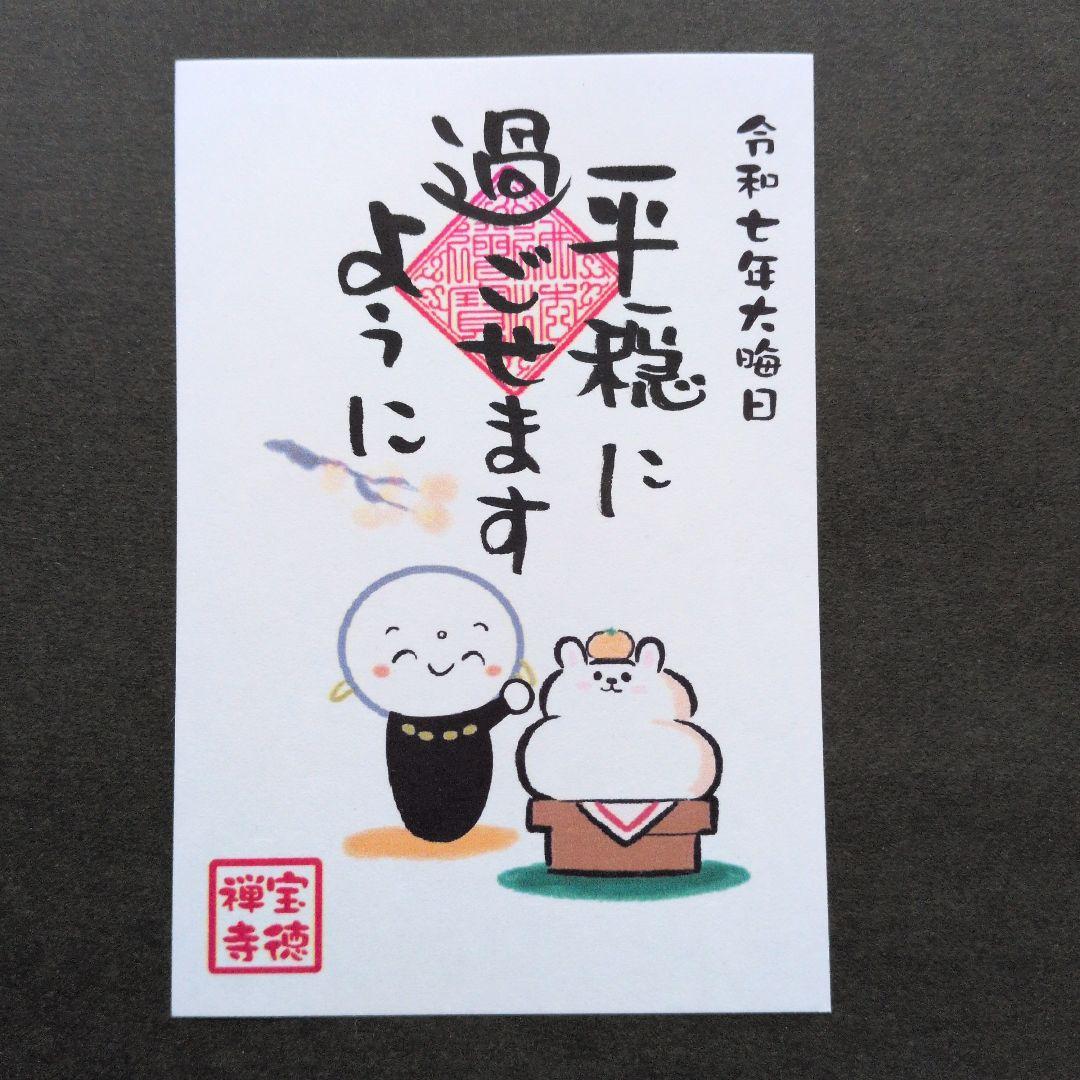 令和七年大晦日
平穏に
過ごせます
ように
宝徳
禅寺